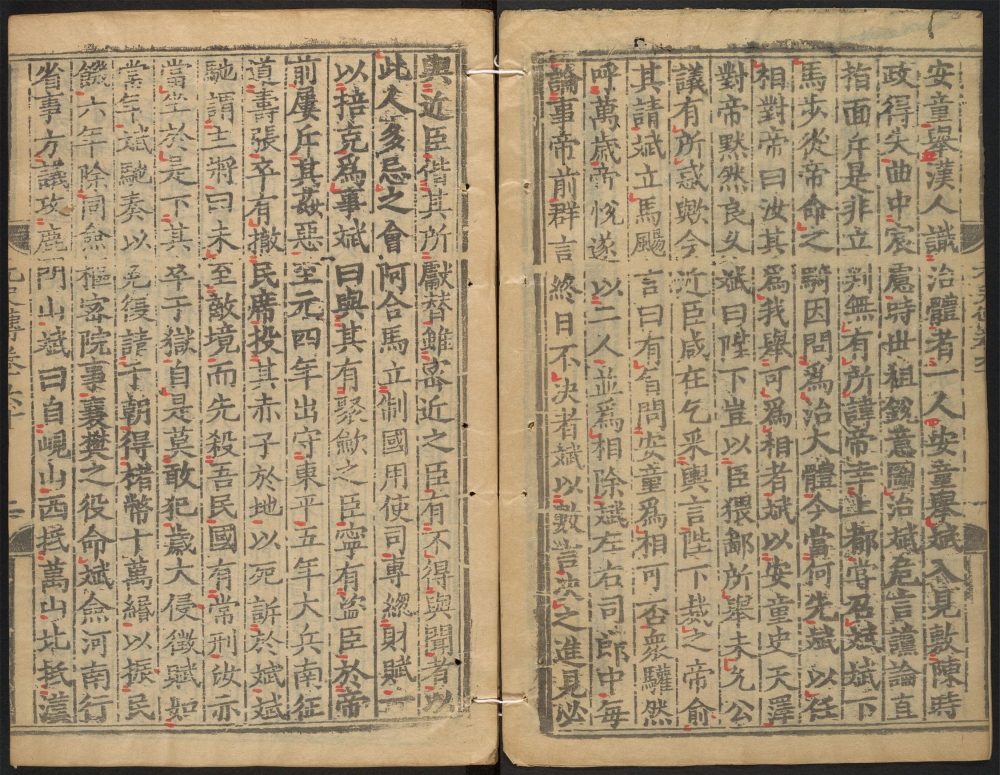 安童舉漢人識治體者一人安童舉斌入見敷陳時
政得失曲中宸慮時世祖銳意圖治斌危言讜論直
指面斥是非立判無有所諱帝幸上都嘗召斌斌下
馬步從帝命之騎因問爲治大體今當何先斌以任
相對帝曰汝其爲我舉可爲相者斌以安童史天澤
對帝默然良久斌曰陛下豈以臣猥鄙所舉未允公
議有所惑歟今近臣咸在乞采輿言陛下裁之帝俞
其請斌立馬颺言曰有旨問安童爲相可否衆驩然
呼萬歲帝悅遂以二人並爲相除斌左右司郎中每
論事帝前群言終日不決者斌以數言決之進見必
與近臣偕其所獻替雖密近之臣有不得與聞者以
此人多忌之會阿合馬立制國用使司專總財賦一
以掊克爲事斌曰與其有聚歛之臣寧有盜臣於帝
前屢斥其姦惡至元四年出守東平五年大兵南征
道壽張卒有撤民席投其赤子於地以死訴於斌斌
馳謂主將曰未至敵境而先殺吾民國有常刑汝亦
當坐於是下其卒于獄自是莫敢犯歲大侵徵賦如
常年斌馳奏以免復請于朝得楮幣十萬緡以振民
饑六年除同僉樞密院事襄樊之役命斌僉河南行
省事方議攻鹿門山斌曰自峴山西抵萬山北抵漢